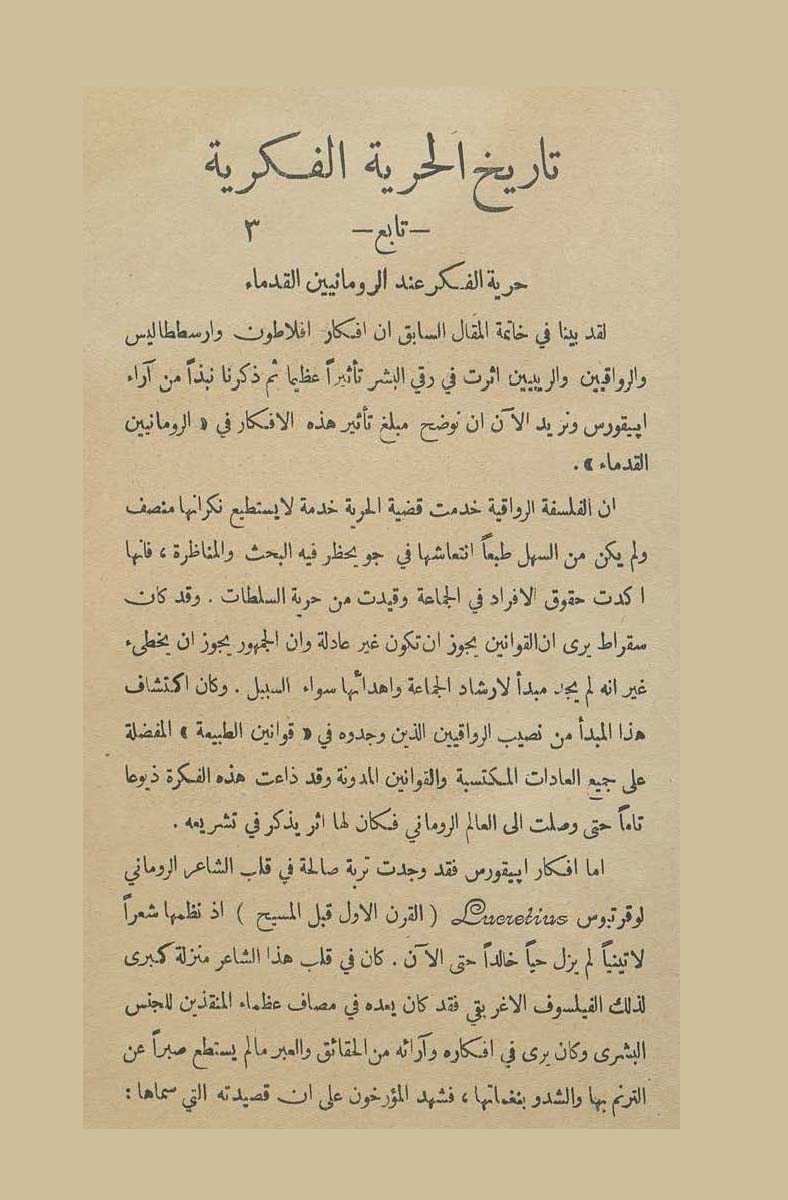 تاريخ الحرية الفكرية
—تابع— ٣
حرية الفكر عند الرومانيين القدماء
لقد بينا في خاتمة المقال السابق ان افكار افلاطون وارسططاليس
والرواقيين والريبيين اثرت في رقي البشر تأثيراً عظيما ثم ذكرنا نبذاً من آراء
اپيقورس ونريد الآن ان نوضح مبلغ تأثير هذه الافكار في « الرومانيين
القدماء » .
ان الفلسفة الرواقية خدمت قضية الحرية خدمة لايستطيع نكرانها منصف
ولم يكن من السهل طبعاً انتعاشها في جو يحظر فيه البحث والمناظرة ، فانها
اكدت حقوق الافراد في الجماعة وقيدت من حرية السلطات . وقد كان
سقراط يرى ان القوانين يجوز ان تكون غير عادلة وان الجمهور يجوز ان يخطىء
غير انه لم يجد مبدأ لارشاد الجماعة واهدائها سواء السبيل . وكان اكتشاف
هذا المبدأ من نصيب الرواقيين الذين وجدوه في « قوانين الطبيعة » المفضلة
على جميع العادات المكتسبة والقوانين المدونة وقد ذاعت هذه الفكرة ذيوعا
تاماً حتى وصلت الى العالم الروماني فكان لها اثر يذكر في تشريعه .
اما افكار اپيقورس فقد وجدت تربة صالحة في قلب الشاعر الروماني
لوقرتيوس Lucretius ( القرن الاول قبل المسيح ) اذ نظمها شعراً
لاتينياً لم يزل حياً خالداً حتى الآن . كان في قلب هذا الشاعر منزلة كبرى
لذلك الفيلسوف الاغريقي فقد كان يعده في مصاف عظماء المنقذين للجنس
البشرى وكان يرى في افكاره وآرائه من الحقائق والعبر مالم يستطع صبراً عن
الترنم بها والشدو بنغماتها ، فشهد المؤرخون على ان قصيدته التي سماها :